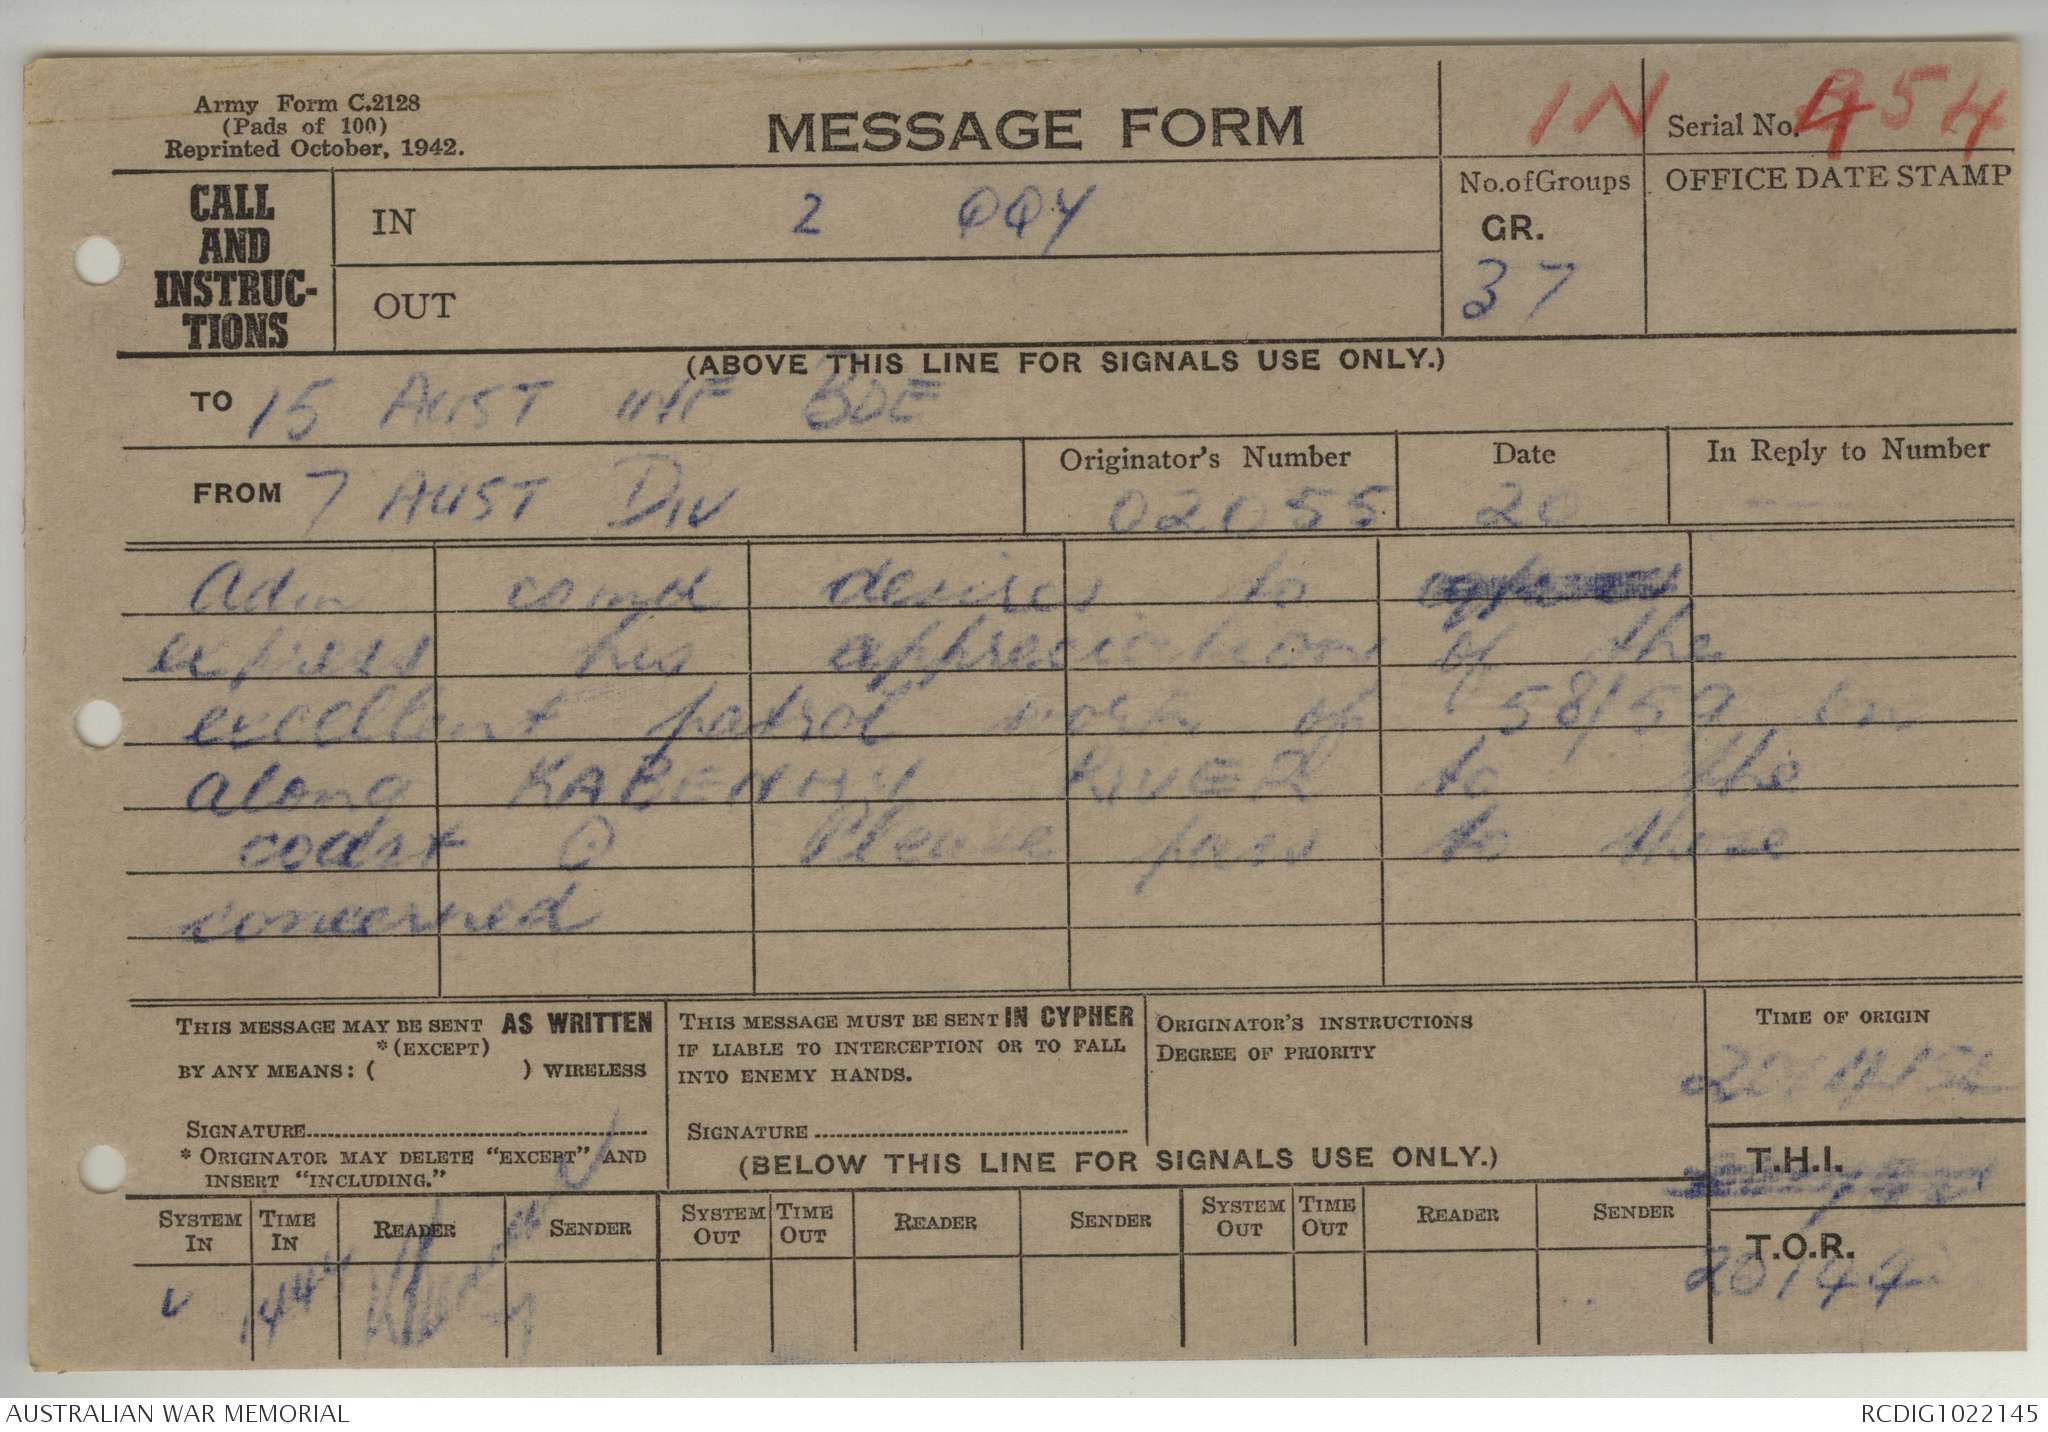 Army Form C.2128
(Pads of 100)
Reprinted October, 1942.
MESSAGE FORM
IN
Serial No. 454
CALL AND INSTRUC-TIONS
IN 2 QQY
OUT
No. of Groups
GR.
37
OFFICE DATE STAMP
(ABOVE THIS LINE FOR SIGNALS USE ONLY.)
TO 15 AUST INF BDE
FROM 7 AUST DIV
Originator's Number
02055
Date
20
In Reply to Number
Adm comd desires to
express his appreciation of the
excellent patrol work of 58/59 bn
along KABENAU RIVER to the
coast O Please pass to those
concerned
THIS MESSAGE MAY BE SENT AS WRITTEN
*(EXCEPT)
BY ANY MEANS: ( ) WIRELESS
SIGNATURE
* ORIGINATOR MAY DELETE "EXCEPT" AND
INSERT "INCLUDING."
THIS MESSAGE MUST BE SENT IN CYPHER
IF LIABLE TO INTERCEPTION OR TO FALL
INTO ENEMY HANDS.
SIGNATURE
ORIGINATOR'S INSTRUCTIONS
DEGREE OF PRIORITY
TIME OF ORIGIN
(BELOW THIS LINE FOR SIGNALS USE ONLY.)
T.H.I.
SYSTEM IN
TIME IN
READER
SENDER
SYSTEM OUT
TIME OUT
READER
SENDER
SYSTEM OUT
TIME OUT
READER
SENDER
T.O.R.
1444
AUSTRALIAN WAR MEMORIAL
RCDIG1022145